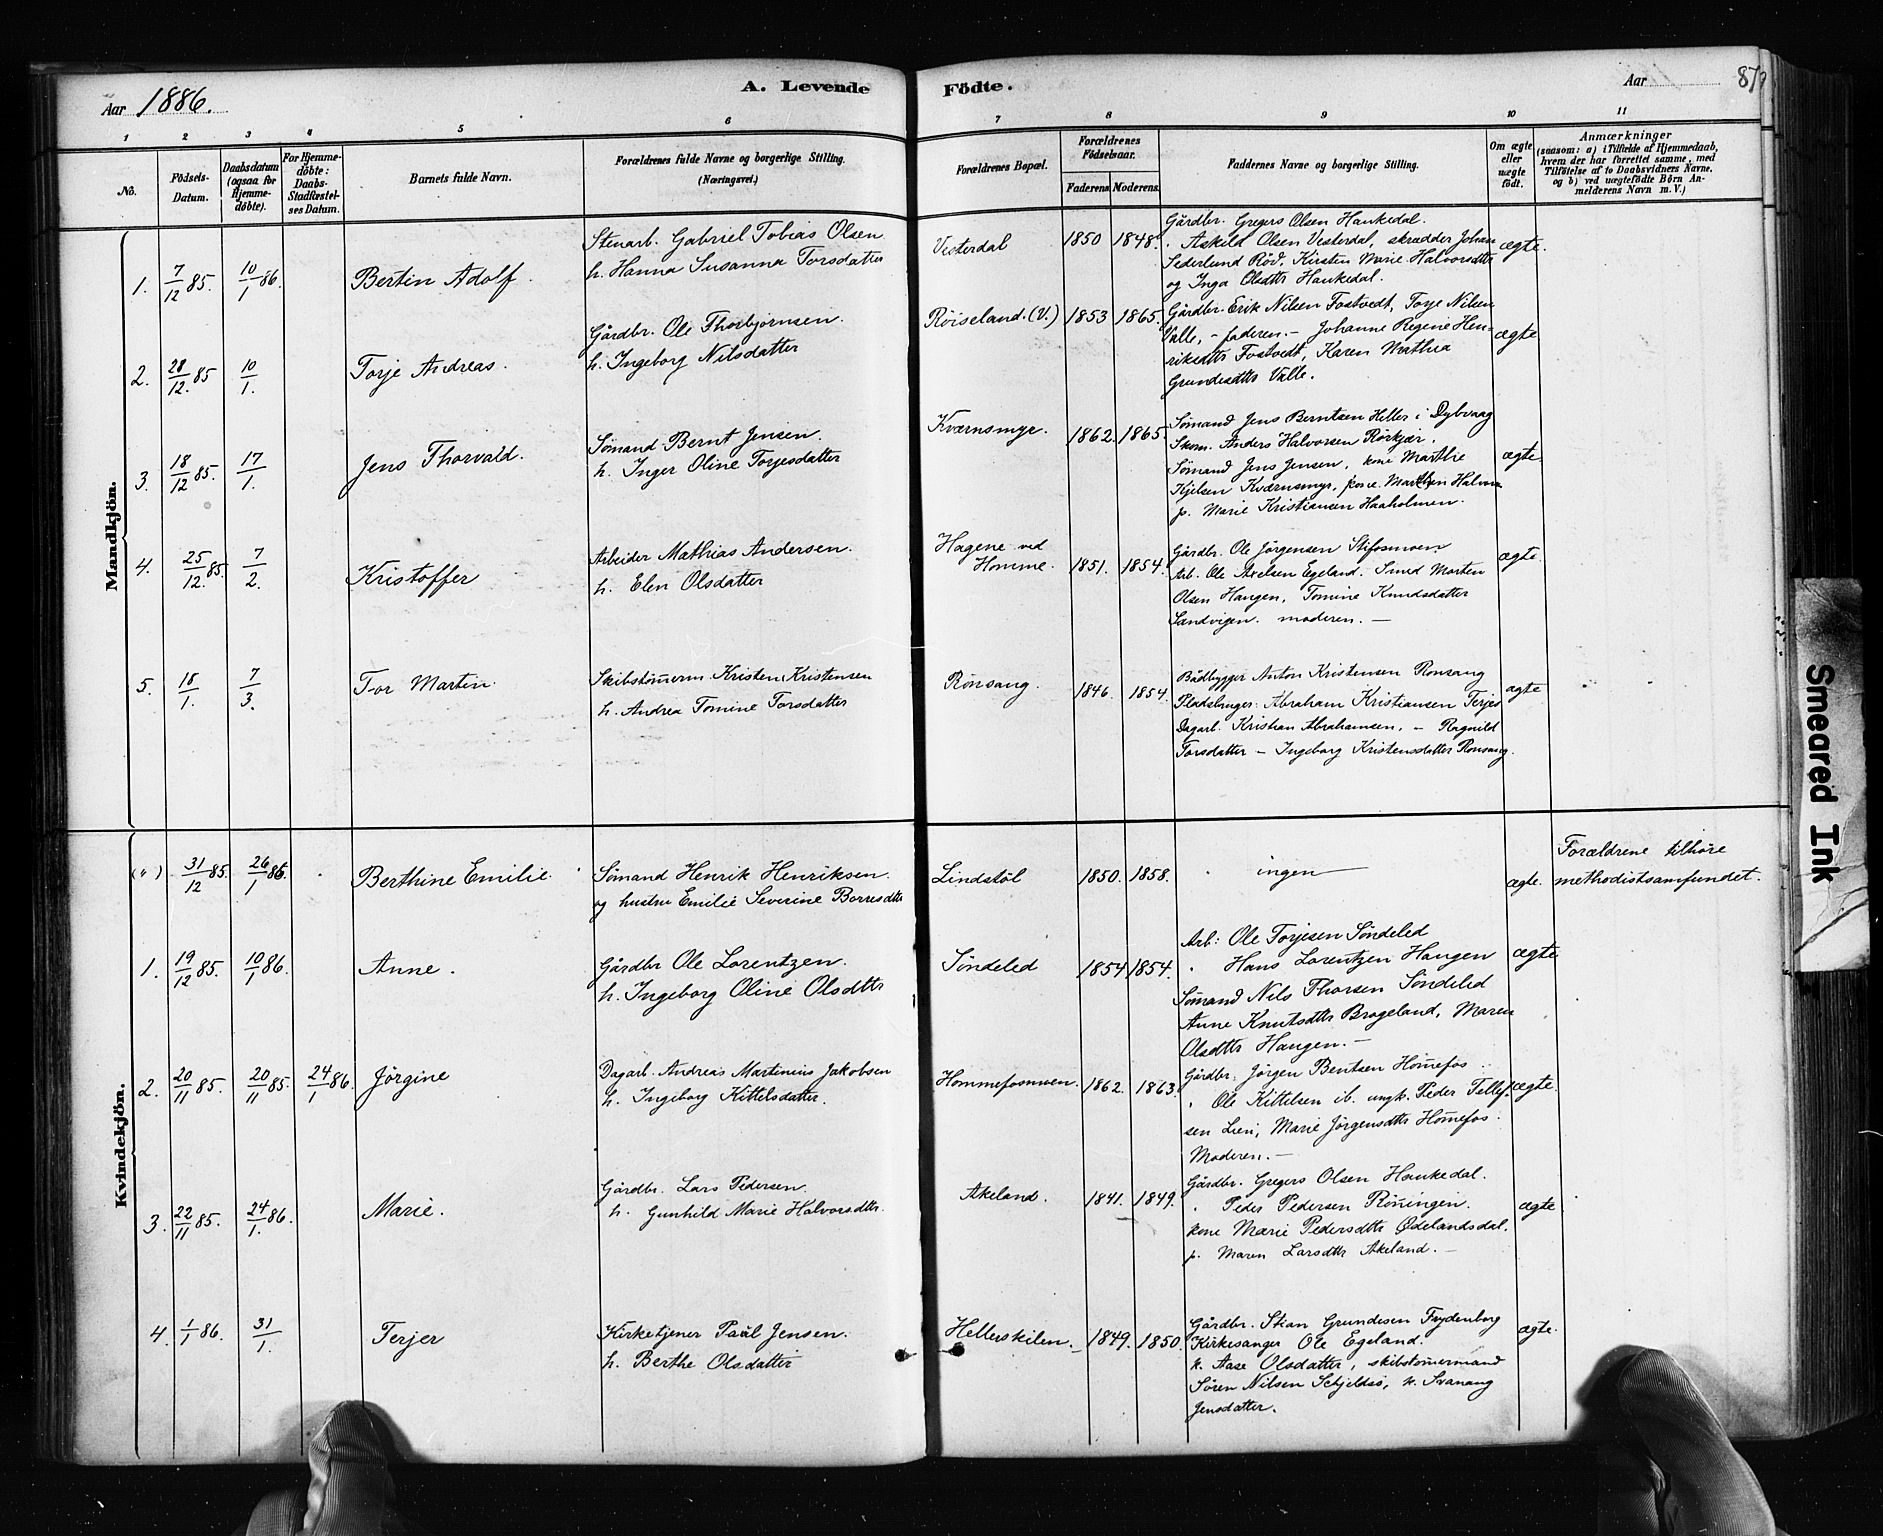 Aar 1886.
A. Levende
Födte.
Aar
87
1
2
3
4
5
6
7
8
9
10
11
No.
Födsels-Datum.
Daabsdatum (ogsaa for Hjemme-döbte).
For Hjemme-döbte: Daabs-Stadfæstel-ses Datum.
Barnets fulde Navn.
Forældrenes fulde Navne og borgerlige Stilling. (Næringsvei.)
Forældrenes Bopæl.
Forældrenes Födselsaar.
Faderens
Moderens.
Faddernes Navne og borgerlige Stilling.
Om ægte eller uægte født.
Anmærkninger
(saasom: a) i Tilfælde af Hjemmedaab, hvem der har forrettet samme, med Tilföielse af to Daabsvidners Navne, og b) ved uægtefödte Börn An-melderens Navn m. V.)
Mandkjön.
1. 7/12 85. 10/1 86. Bertin Adolf.
Stenarb. Gabriel Tobias Olsen
h. Hanna Susanna Torsdatter
Vesterdal 1850 1848.
Gårdbr. Gregers Olsen Haukedal.
Askild Olsen Vesterdal, skrædder Johan
Sederlund Röd, Kirsten Marie Halvorsdttr
og Inga Olsdttr Haukedal.
ægte.
2. 28/12 85 10/1. Torje Andreas.
Gårdbr. Ole Thorbjörnsen.
h. Ingeborg Nilsdatter
Röiseland. (V.) 1853 1865.
Gårdbr. Erik Nilsen Fostvedt, Torje Nilsen
Valle, – faderen. – Johanne Regine Hen-
riksdttr Fostvedt, Karen Mathea
Grundesdttr Valle.
ægte
3. 18/12 85. 17/1. Jens Thorvald.
Sömand Bernt Jensen.
h. Inger Oline Torjesdatter
Kværnsmyr. 1862. 1865.
Sömand Jens Berntsen Heller i Dybvaag
Skom. Anders Halvorsen Rörkjær.
Sömand Jens Jensen, kone Marthe
Kjelsen Kværnsmyr, kone Marthin Halvor
p. Marie Kristiansen Haaholmen.
ægte.
4. 25/12 85. 7/2. Kristoffer
Arbeider Mathias Andersen.
h. Elen Olsdatter
Hagene ved
Homme. 1851. 1854.
Gårdbr. Ole Jörgensen Stifosmoen
Arb. Ole Axelsen Egeland. Smed Morten
Olsen Haugen, Tomine Knudsdatter
Sandvigen. moderen. –
ægte.
5. 18/1. 7/3. Tor Martin.
Skibstömerm. Kristen Kristensen
h. Andrea Tomine Torsdatter
Rönsang. 1846. 1854.
Bådbygger Anton Kristensen Ronsang
Pladsbruger Abraham Kristiansen Terjes
Dagarb. Kristian Abrahamsen, – Ragnild
Torsdatter – Ingeborg Kristensdatter Ronsang.
ægte
Kvindekjön.
(") 31/12 85. 26/1 86. Berthine Emilie
Sömand Henrik Henriksen.
og hustru Emilie Severine Borresdttr
Lindstöl 1850. 1858.
ingen
ægte.
Forældrene tilhöre
methodistsamfundet.
1. 19/12 85. 10/1 86. Anne.
Gårdbr Ole Lorentzen.
h. Ingeborg Oline Olsdttr
Söndeled 1854 1854.
Arb: Ole Torjesen Söndeled
Hans Lorentzen Haugen
Sömand Nils Thorsen Söndeled
Anne Knutsdttr Brogeland, Maren
Olsdttr Haugen. –
ægte
2. 20/11 85. 20/11 85. 24/1 86. Jörgine
Dagarb. Andreas Martinius Jakobsen
h. Ingeborg Kittelsdatter.
Hommefosmoen. 1862. 1863.
Gårdbr. Jörgen Bentsen Hömefos
Ole Kittelsen ib. ungk. Peder Tellef-
sen Lien, Marie Jörgensdttr Hömefos.
Moderen. –
ægte.
3. 22/11 85. 24/1 86. Marie.
Gårdbr. Lars Pedersen.
h. Gunhild Marie Halvorsdttr.
Akeland. 1841. 1849.
Gårdbr. Gregers Olsen Haukedal.
Peder Pedersen Röningen.
kone Marie Pedersdttr Ödelandsdal.
p. Maren Larsdttr Akeland. –
ægte
4. 1/1 86. 31/1. Terjer
Kirketjener Paul Jensen.
h. Berthe Olsdatter
Hellerskilen. 1849. 1850.
Gårdbr. Stian Grundesen Frydenborg
Kirkesanger Ole Egeland.
k. Aase Olsdatter, skibstömermand
Sören Nilsen Schjeldsö, k. Svanaug
Jensdatter.
ægte.
Smeared Ink